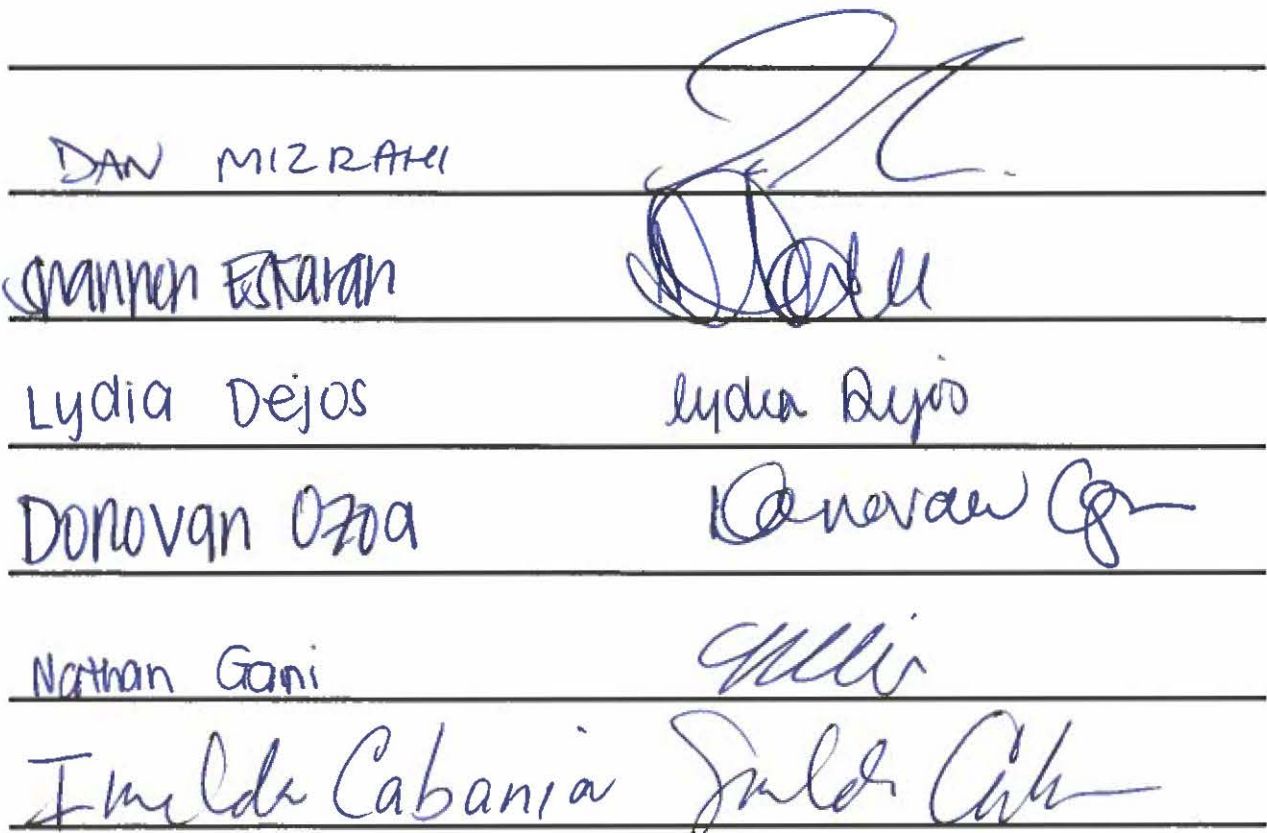 DAN MIZRAHI
Shannen Eskaran
Lydia Dejos Lydia Dejos
Donovan Ozoa Donovan
Nathan Gani
Imelda Cabania Imelda